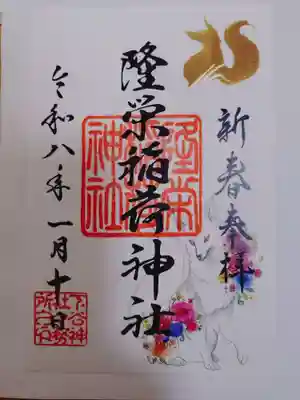 新春奉拝
隆栄稲荷神社
隆栄
神社
令和八年一月十日